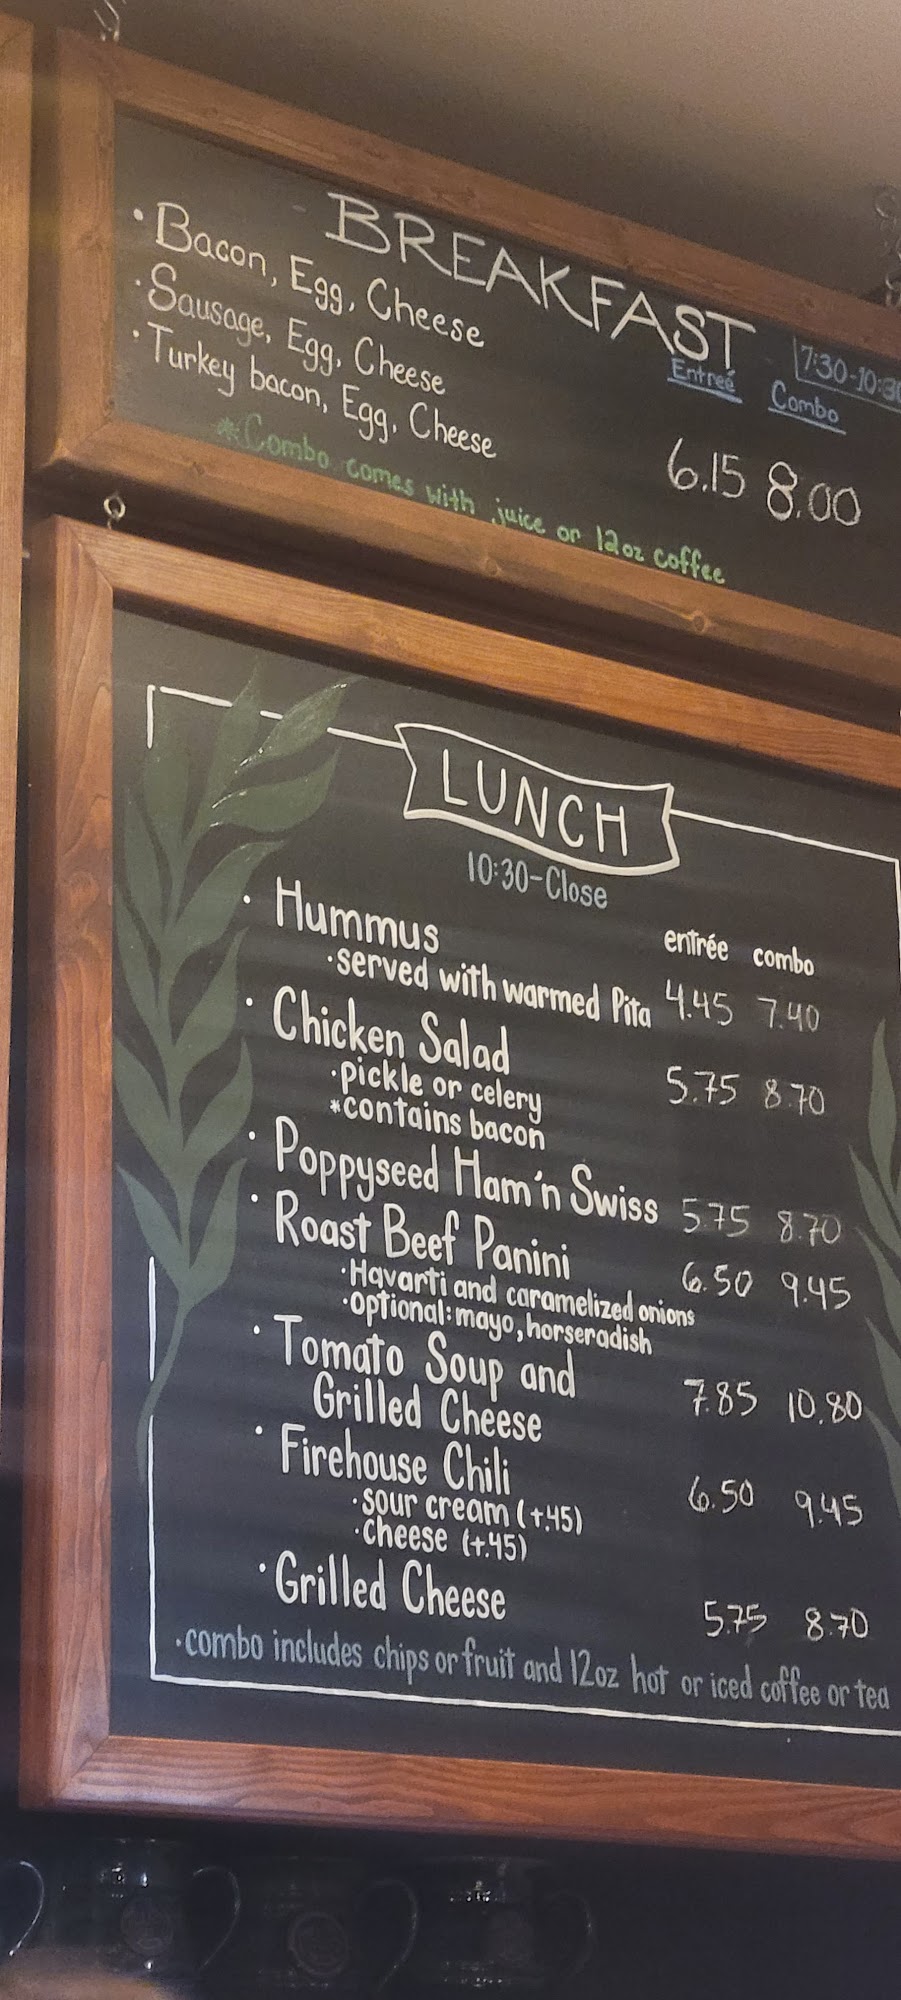 BREAKFAST
7:30-10:30
· Bacon, Egg, Cheese
· Sausage, Egg, Cheese
· Turkey bacon, Egg, Cheese
Entreé Combo
6.15 8.00
*Combo comes with juice or 12oz coffee
LUNCH
10:30-Close
entrée combo
· Hummus
· served with warmed Pita 4.45 7.40
· Chicken Salad 5.75 8.70
· pickle or celery
*contains bacon
· Poppyseed Ham'n Swiss 5.75 8.70
· Roast Beef Panini 6.50 9.45
· Havarti and caramelized onions
· optional: mayo, horseradish
· Tomato Soup and
Grilled Cheese 7.85 10.80
· Firehouse Chili 6.50 9.45
· sour cream (+.45)
· cheese (+.45)
· Grilled Cheese 5.75 8.70
· combo includes chips or fruit and 12oz hot or iced coffee or tea